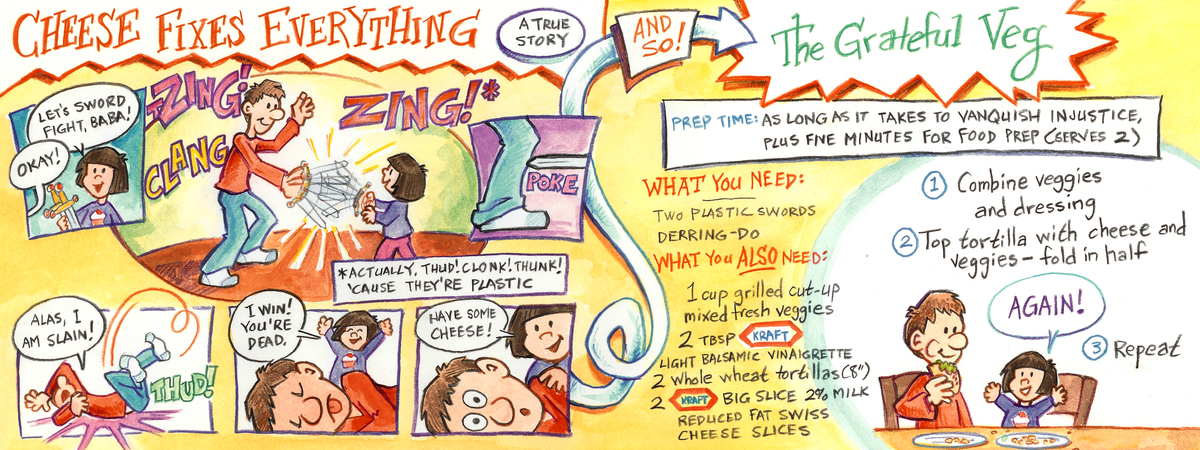 CHEESE FIXES EVERYTHING
A TRUE
STORY
LET'S SWORD
FIGHT, BABA!
OKAY!
ZING!
CLANG
ZING!*
POKE
*ACTUALLY, THUD! CLONK! THUNK!
'CAUSE THEY'RE PLASTIC
ALAS, I
AM SLAIN!
THUD!
I WIN!
YOU'RE
DEAD.
HAVE SOME
CHEESE!
AND
SO!
The Grateful Veg
PREP TIME: AS LONG AS IT TAKES TO VANQUISH INJUSTICE,
PLUS FIVE MINUTES FOR FOOD PREP (SERVES 2)
WHAT YOU NEED:
TWO PLASTIC SWORDS
DERRING-DO
WHAT YOU ALSO NEED:
1 cup grilled cut-up
mixed fresh veggies
2 TBSP KRAFT
LIGHT BALSAMIC VINAIGRETTE
2 whole wheat tortillas (8")
2 KRAFT BIG SLICE 2% MILK
REDUCED FAT SWISS
CHEESE SLICES
1 Combine veggies
and dressing
2 Top tortilla with cheese and
veggies - fold in half
AGAIN!
3 Repeat